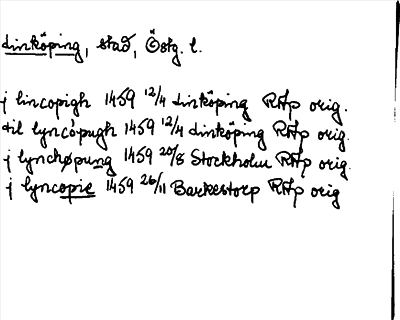 Linköping, stad, Östg. l.
j lincopigh 1459 12/4 Linköping RAp orig.
til lyncópugh 1459 12/4 Linköping RAp orig.
j lynchøpung 1459 20/8 Stockholm RAp orig.
j lyncopie 1459 26/11 Barkestorp RAp orig